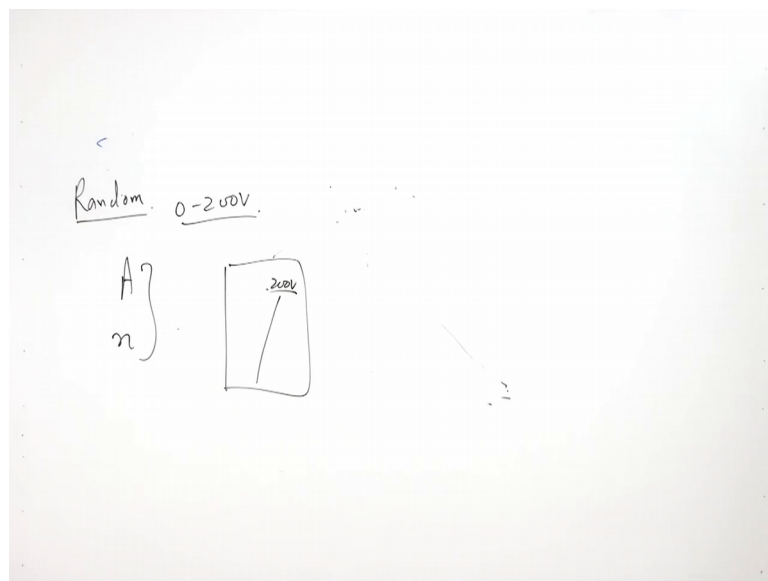 Random. 0-200V.
A
n
200V